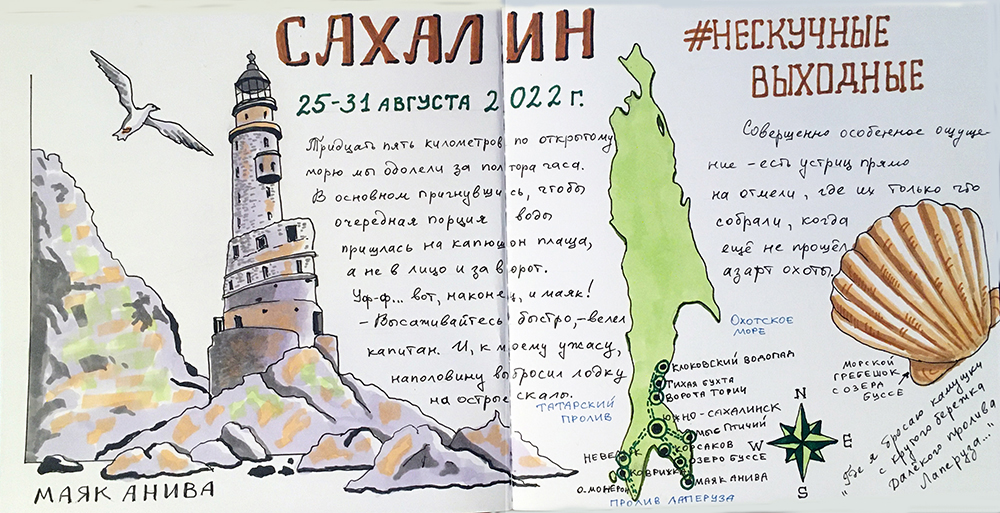 САХАЛИН
25-31 АВГУСТА 2022 Г.
Тридцать пять километров по открытому
морю мы одолели за полтора часа.
В основном пригнувшись, чтобы
очередная порция воды
пришлась на капюшон плаща,
а не в лицо и за ворот.
Уф-ф... вот, наконец, и маяк!
– Высаживайтесь быстро, – велел
капитан. И, к моему ужасу,
наполовину выбросил лодку
на острые скалы.
МАЯК АНИВА
#НЕСКУЧНЫЕ
ВЫХОДНЫЕ
Совершенно особенное ощуще-
ние – есть устриц прямо
на отмели, где их только что
собрали, когда
ещё не прошёл
азарт охоты.
ОХОТСКОЕ
МОРЕ
КЛОКОВСКИЙ ВОДОПАД
ТИХАЯ БУХТА
ВОРОТА ТОРИИ
ЮЖНО-САХАЛИНСК
МЫС ПТИЧИЙ
КОРСАКОВ
ОЗЕРО БУССЕ
МАЯК АНИВА
ТАТАРСКИЙ
ПРОЛИВ
КОВРИЖКА
О. МОНЕРОН
ПРОЛИВ ЛАПЕРУЗА
N
W
E
S
МОРСКОЙ
ГРЕБЕШОК
С ОЗЕРА
БУССЕ
бросаю камушки
с крутого бережка
Далёкого пролива
Лаперуза..."